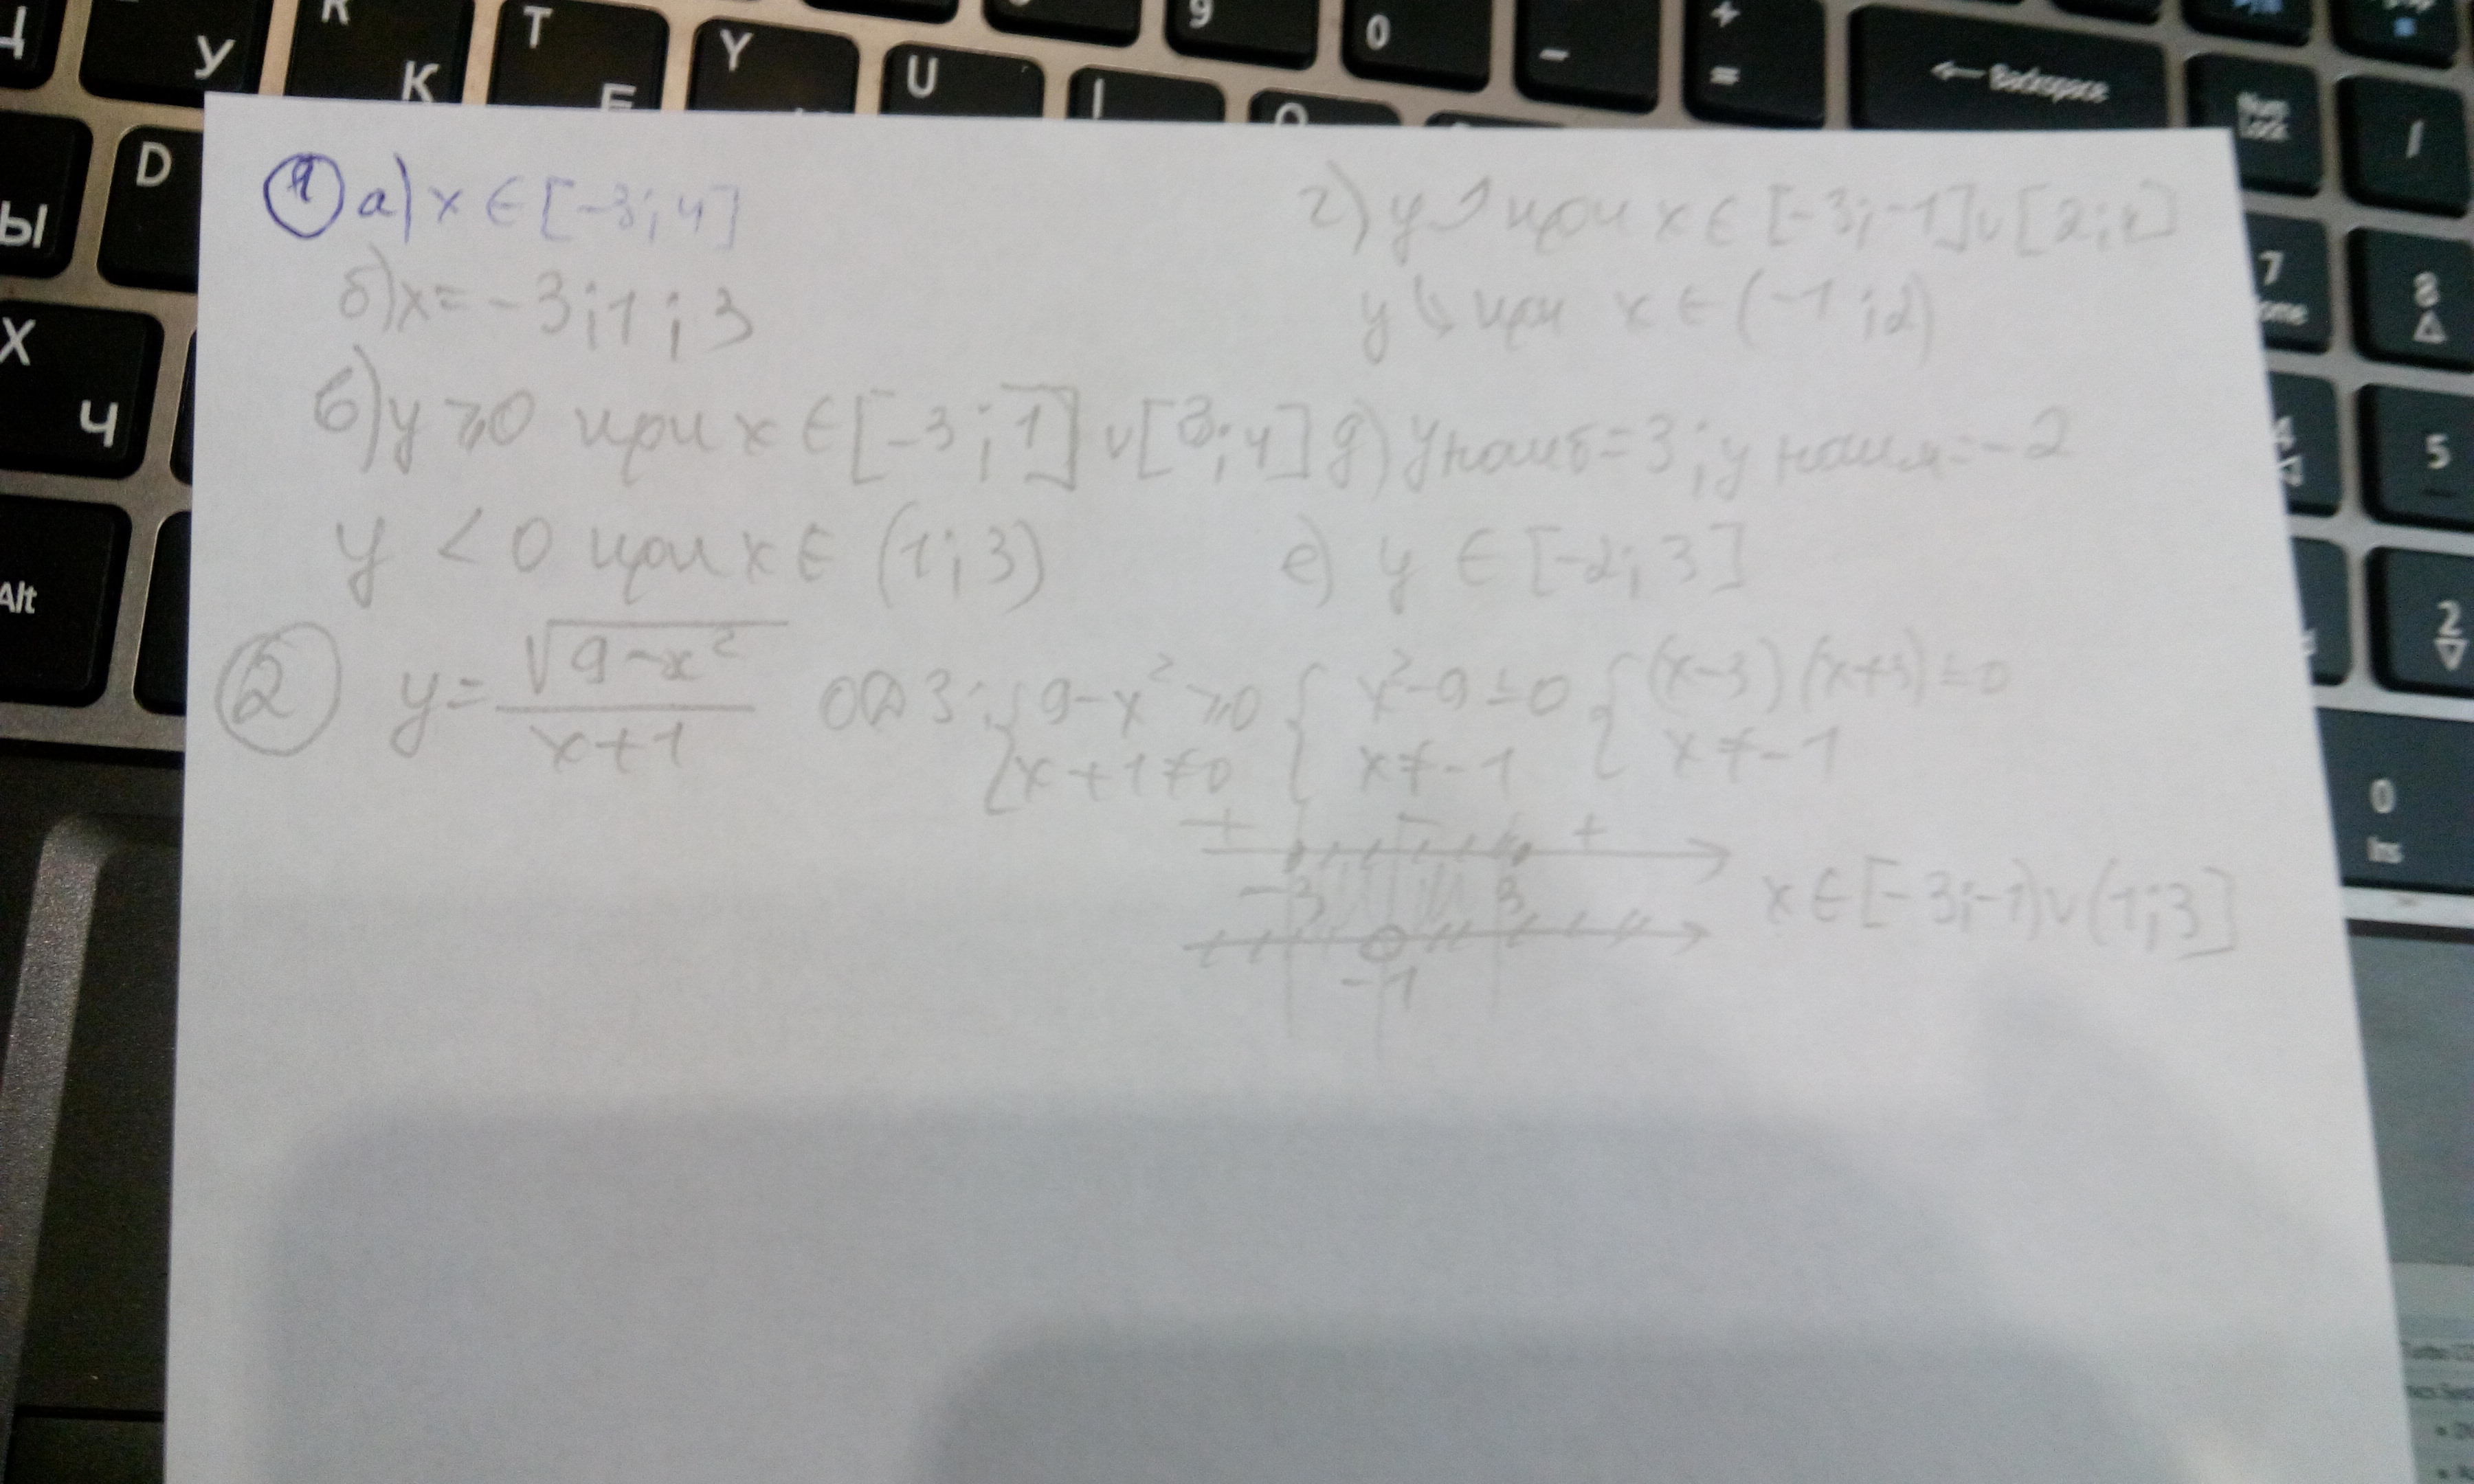 Ц У R К T Е Y U I O 9 0 - + = ← Backspace Num Lock /
Ы D
Х Ч
Alt
7
8
4
5
2
0 Ins
① а) x ∈ [-3; 4]
б) x = -3; 1; 3
в) y ≥ 0 при x ∈ [-3; 1] ∪ [3; 4]
y < 0 при x ∈ (1; 3)
г) y ↗ при x ∈ [-3; -1] ∪ [2; 4]
y ↘ при x ∈ (-1; 2)
д) y наиб = 3; y наим = -2
е) y ∈ [-2; 3]
② y = √(9-x²)/(x+1) ОДЗ: { 9-x² ≥ 0 { x²-9 ≤ 0 { (x-3)(x+3) ≤ 0
x+1 ≠ 0 x ≠ -1 x ≠ -1
+ - +
-3 3
-1
x ∈ [-3; -1) ∪ (1; 3]